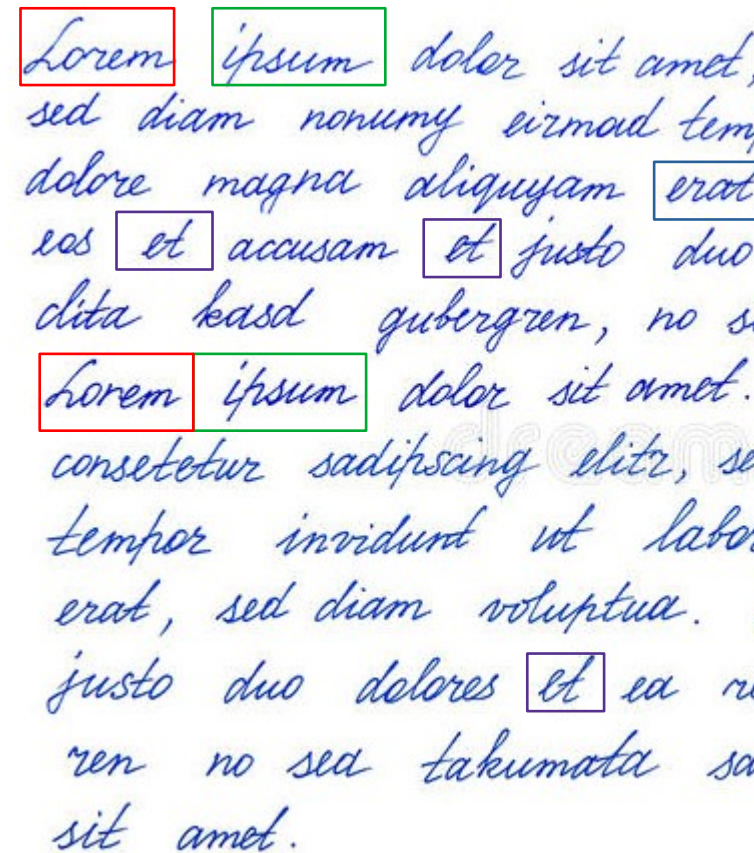 Lorem ipsum dolor sit amet,
sed diam nonumy eirmod temp
dolore magna aliquyam erat
eos et accusam et justo duo
clita kasd gubergren, no s
Lorem ipsum dolor sit amet.
consetetur sadipscing elitr, se
tempor invidunt ut labor
erat, sed diam voluptua.
justo duo dolores et ea r
ren no sea takumata sa
sit amet.